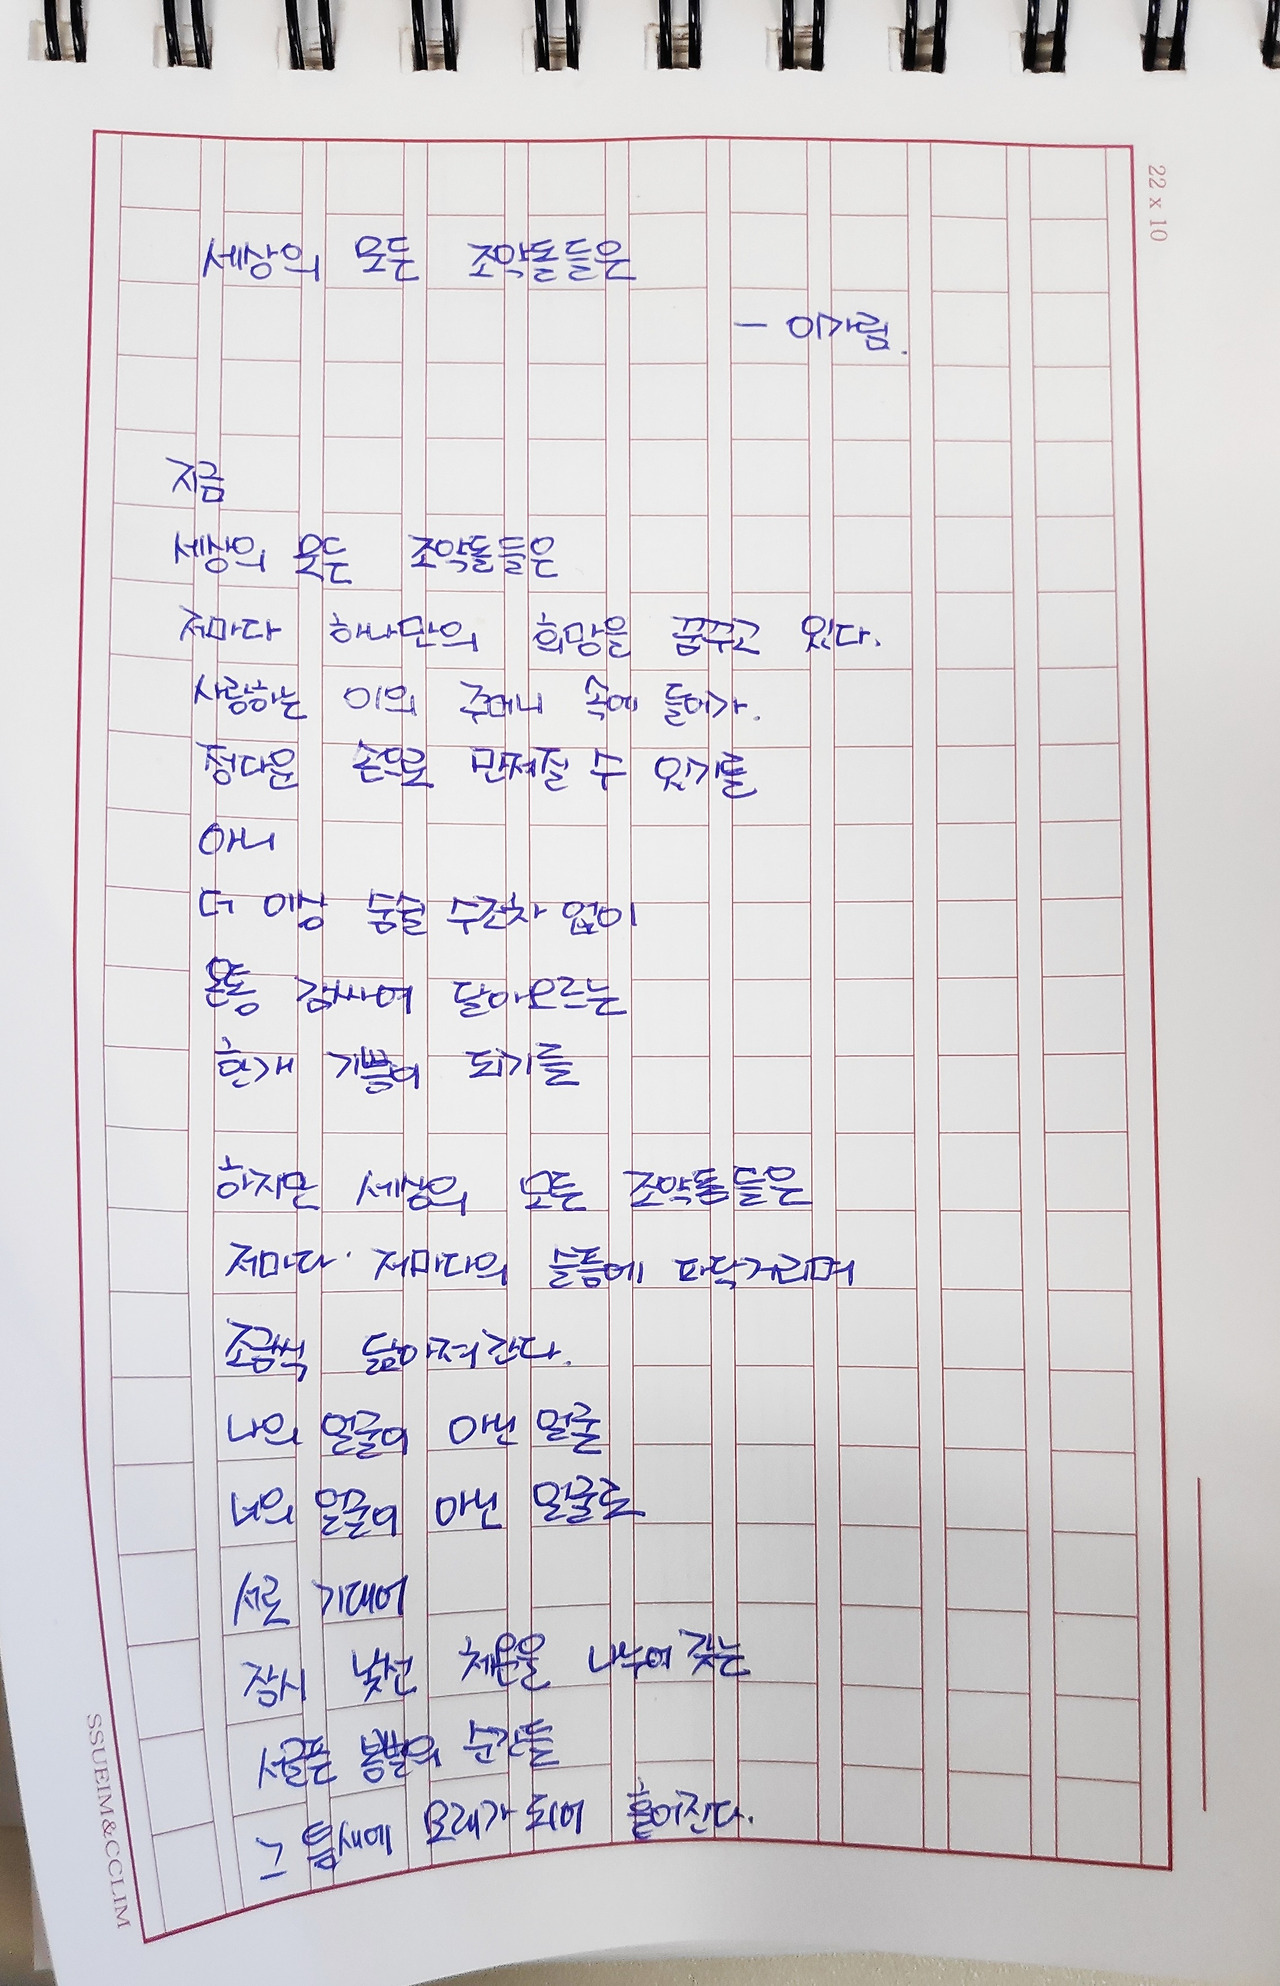 22 x 10
세상의 모든 조약돌들은
- 이가림.
지금
세상의 모든 조약돌들은
저마다 하나만의 희망을 꿈꾸고 있다.
사랑하는 이의 주머니 속에 들어가.
정다운 손으로 만져질 수 있기를
아니
더 이상 숨술 수조차 없이
온통 감싸여 달아오르는
한개 기쁨이 되기를
하지만 세상의 모든 조약돌들은
저마다 저마다의 슬픔에 파닥거리며
조금씩 닮아져간다.
나의 얼굴이 아닌 얼굴
너의 얼굴이 아닌 얼굴로
서로 기대어
잠시 낯선 체온을 나누어 갖는
서글픈 봉별의 순간들
그 틈새에 모래가 되어 흩어진다.
SSUEIM&CCLIM